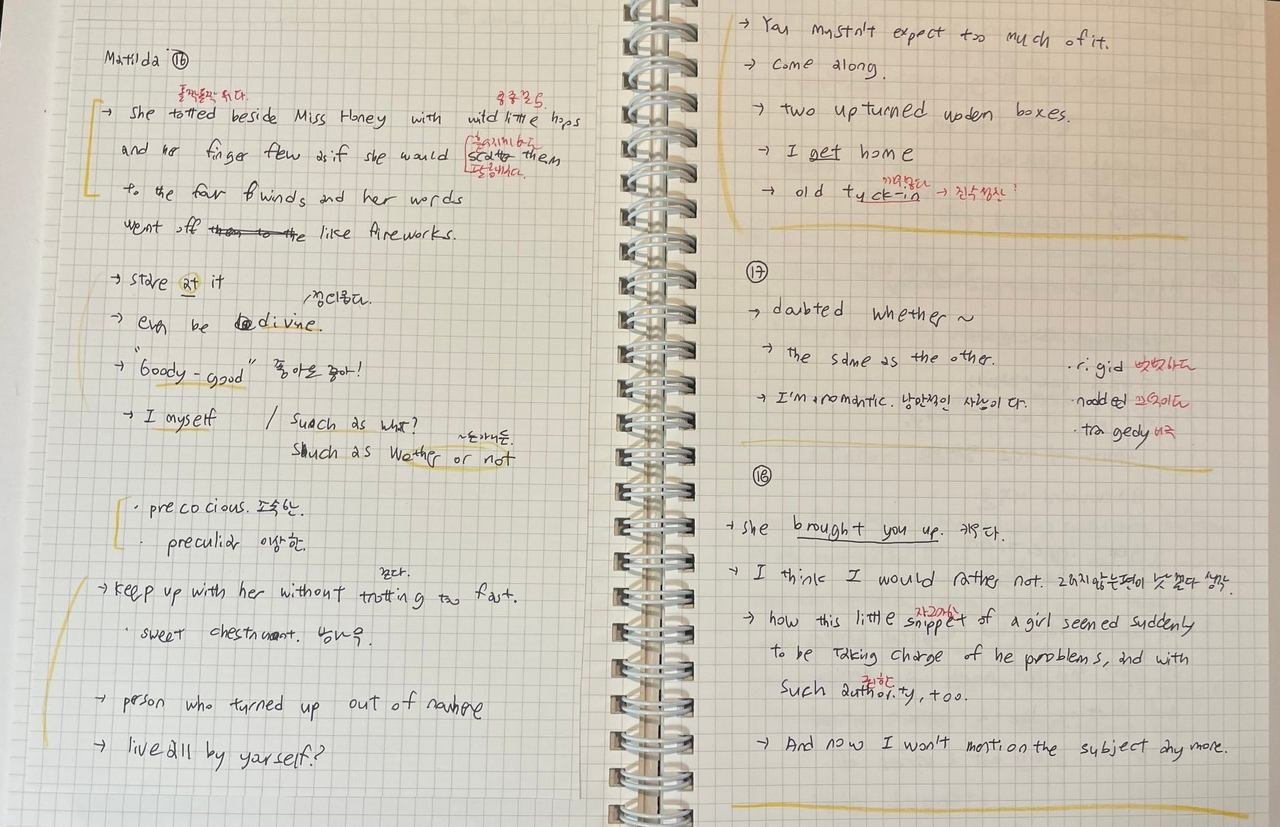 Matilda ⑯
폴짝폴짝 뛰다. 깡충깡충
→ she totted beside Miss Honey with wild little hops
and her finger flew as if she would scatter them
to the far 4 winds and her words
went off like fireworks.
→ stare at it
→ even be divine.
→ "Goody-good" 좋아요 좋아!
→ I myself / Suach as what?
~든가 아니든.
Shuch as wether or not
· precocious. 조숙한.
· preculiar 이상한.
뛴다.
→ keep up with her without trotting too fast.
· sweet chestnunt. 밤나무.
→ person who turned up out of nowhere
→ live all by yourself?
→ You mustn't expect too much of it.
→ come along.
→ two upturned wooden boxes.
→ I get home
→ old tuck-in → 진수성찬
⑰
→ doubted whether ~
→ the same as the other.
· rigid 뻣뻣하다
→ I'm a romantic. 낭만적인 사람이다.
· nodded 끄덕이다
· tragedy 비극
⑱
→ she brought you up. 키우다.
→ I think I would rather not. 그러지않는편이 낫겠다 생각.
자그마한
→ how this little snippet of a girl seened suddenly
to be taking charge of he problems, and with
권한
such authority, too.
→ And now I won't mention the subject any more.